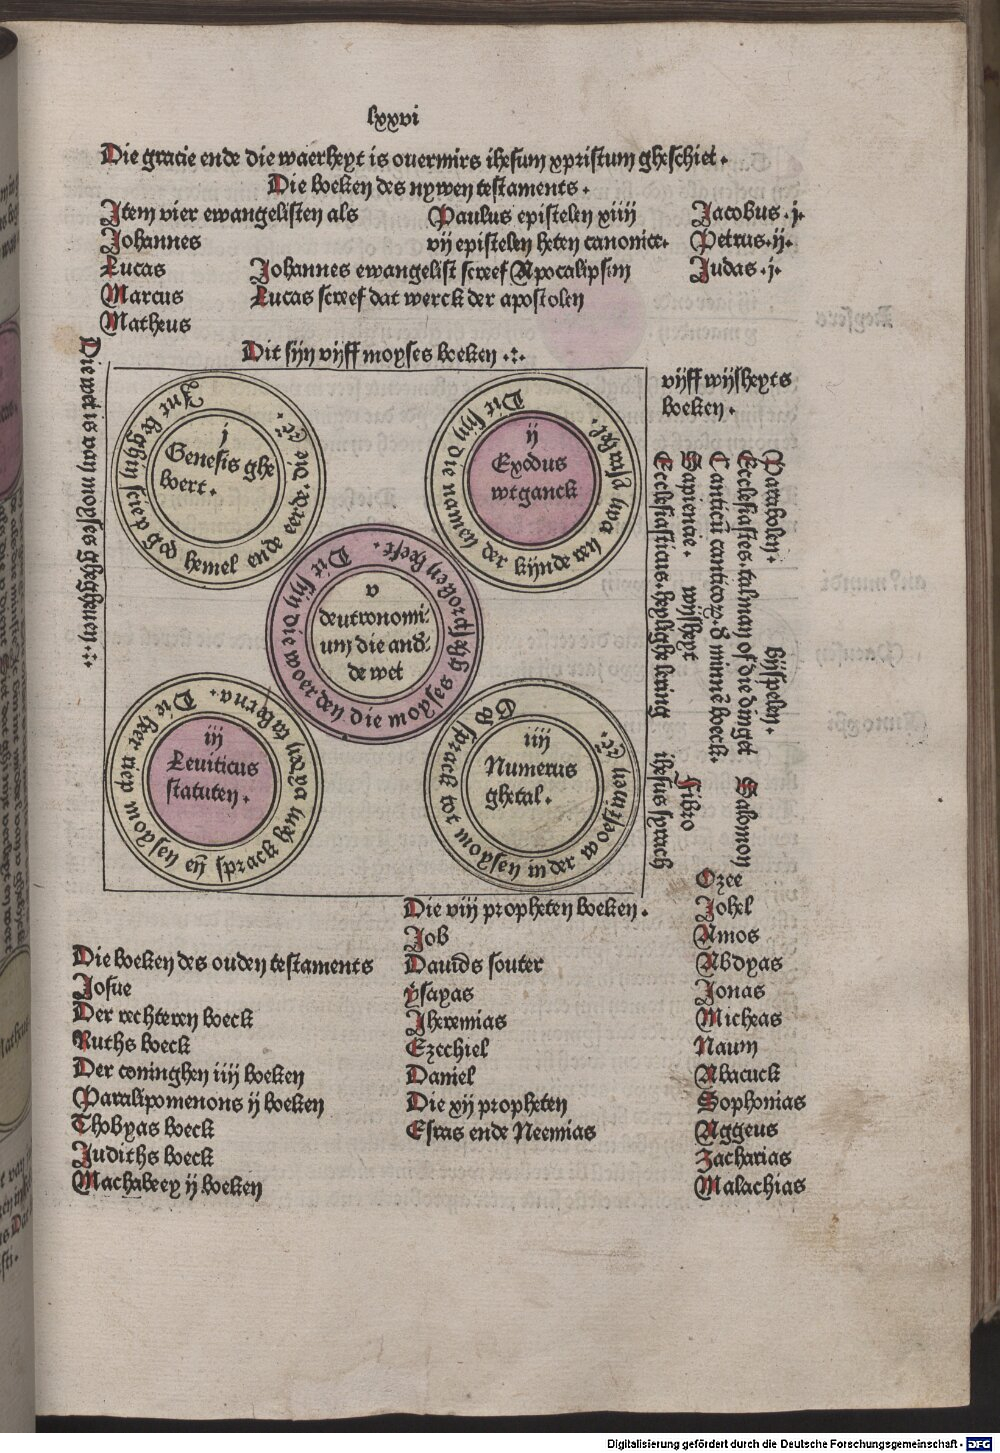 lxxvi
Die gracie ende die waerheyt is ouermits ihesum xpristum gheschiet.
Die boeken des nywen testaments.
Item vier ewangelisten als
Johannes
Lucas
Marcus
Matheus
Paulus epistelen xiiij
vij epistelen heten canonice.
Johannes ewangelist screef Apocalipsim
Lucas screef dat werck der apostolen
Jacobus. j.
Petrus. ij.
Judas. j.
Dit sijn vijff moyses boeken
Die wet is van moyses ghegheuen
Int beghin sciep god hemel ende eerde. die eerde. etc.
j
Genesis ghe
boert.
Dit sijn die namen der kijnderen van israhel.
ij
Exodus
wtganck
Dit sijn die woerden die moyses ghesproken heeft.
v
deutronomi-
um die and-
de wet
Die heer riep moysen eñ sprack hem van den taberna.
iij
Leuiticus
statuten.
God sprack tot moysen in der woestinen etc.
iiij
Numerus
ghetal.
vijff wijsheyts
boeken.
Parabolen. bijspelen.
Ecclesiastes. talman of die dinget Salomon
Canticũ canticoꝝ. d minnē boeck.
Sapiencie. wijsheyt Filoo
Ecclesiasticus. heylighe lering ihesus sprach
Die viij propheten boeken.
Job
Dauids souter
ysayas
Jheremias
Ezechiel
Daniel
Die xij propheten
Esras ende Neemias
Die boeken des ouden testaments
Josue
Der rechteren boeck
Ruths boeck
Der coninghen iiij boeken
Paralipomenons ij boeken
Thobyas boeck
Judiths boeck
Machabeey ij boeken
Ozee
Johel
Amos
Abdyas
Jonas
Micheas
Naum
Abacuck
Sophonias
Aggeus
Zacharias
Malachias
Digitalisierung gefördert durch die Deutsche Forschungsgemeinschaft - DFG